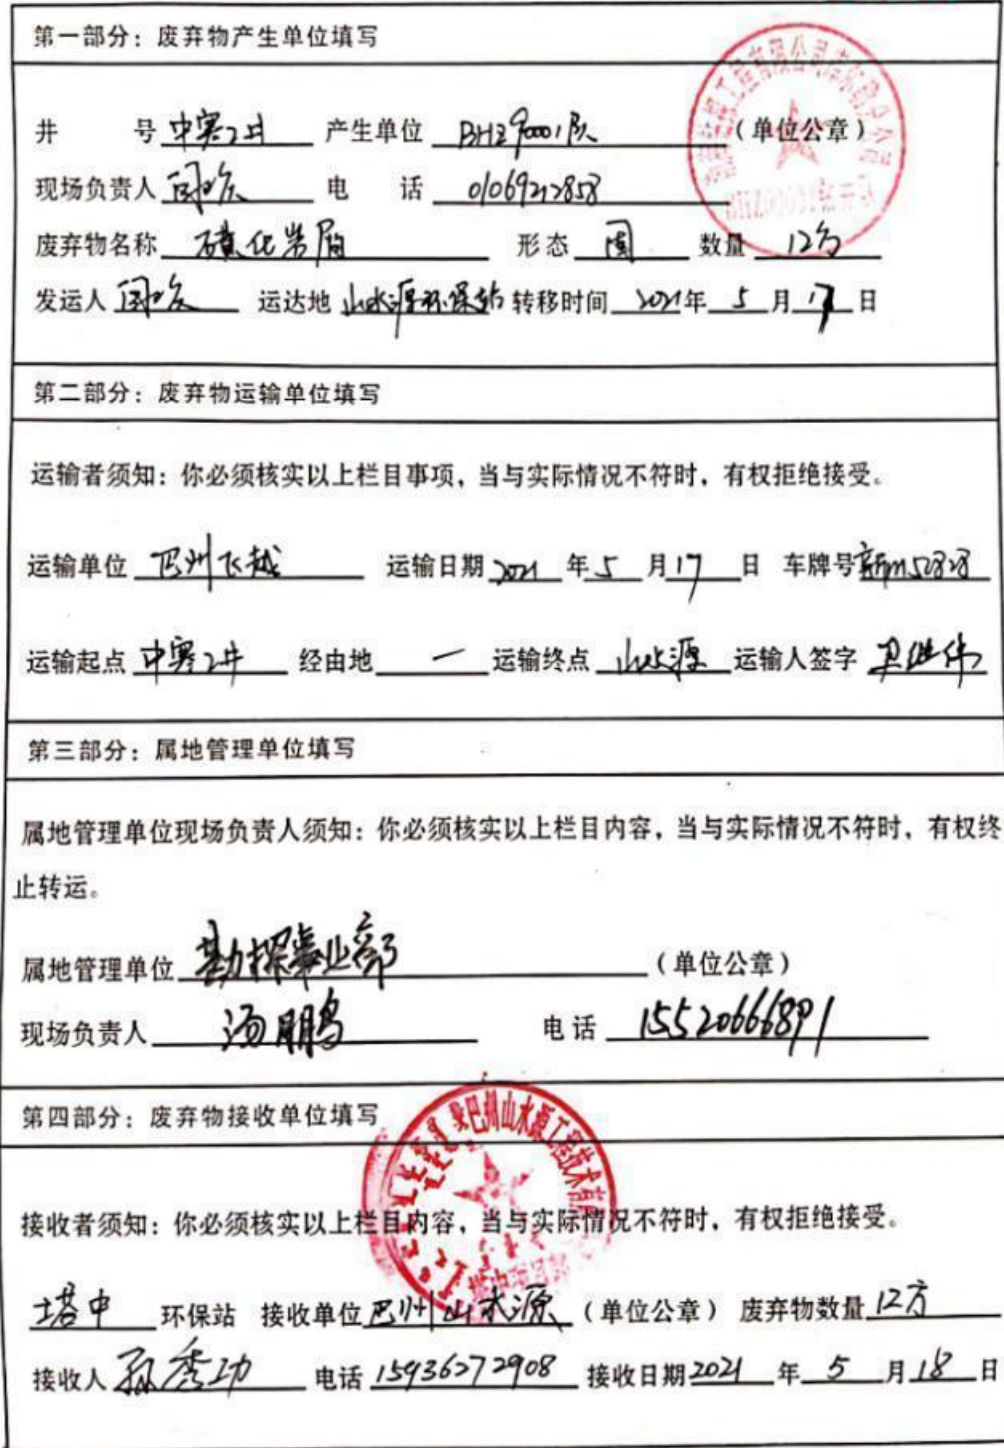 第一部分：废弃物产生单位填写
井 号 中寒2井 产生单位 BHZ90001队 （单位公章）
现场负责人 电 话 01069212858
废弃物名称 磺化岩屑 形态 固 数量 12方
发运人 运达地 山水源环保站 转移时间 2021年 5 月 17 日
第二部分：废弃物运输单位填写
运输者须知：你必须核实以上栏目事项，当与实际情况不符时，有权拒绝接受。
运输单位 巴州飞越 运输日期 2021 年 5 月 17 日 车牌号
运输起点 中寒2井 经由地 一 运输终点 山水源 运输人签字
第三部分：属地管理单位填写
属地管理单位现场负责人须知：你必须核实以上栏目内容，当与实际情况不符时，有权终
止转运。
属地管理单位 勘探事业部 （单位公章）
现场负责人 汤鹏 电话 15520666891
第四部分：废弃物接收单位填写
巴州山水源工程技术有
接收者须知：你必须核实以上栏目内容，当与实际情况不符时，有权拒绝接受。
塔中 环保站 接收单位 巴州山水源 （单位公章） 废弃物数量 12方
接收人 孙秀功 电话 15936272908 接收日期 2021 年 5 月 18 日